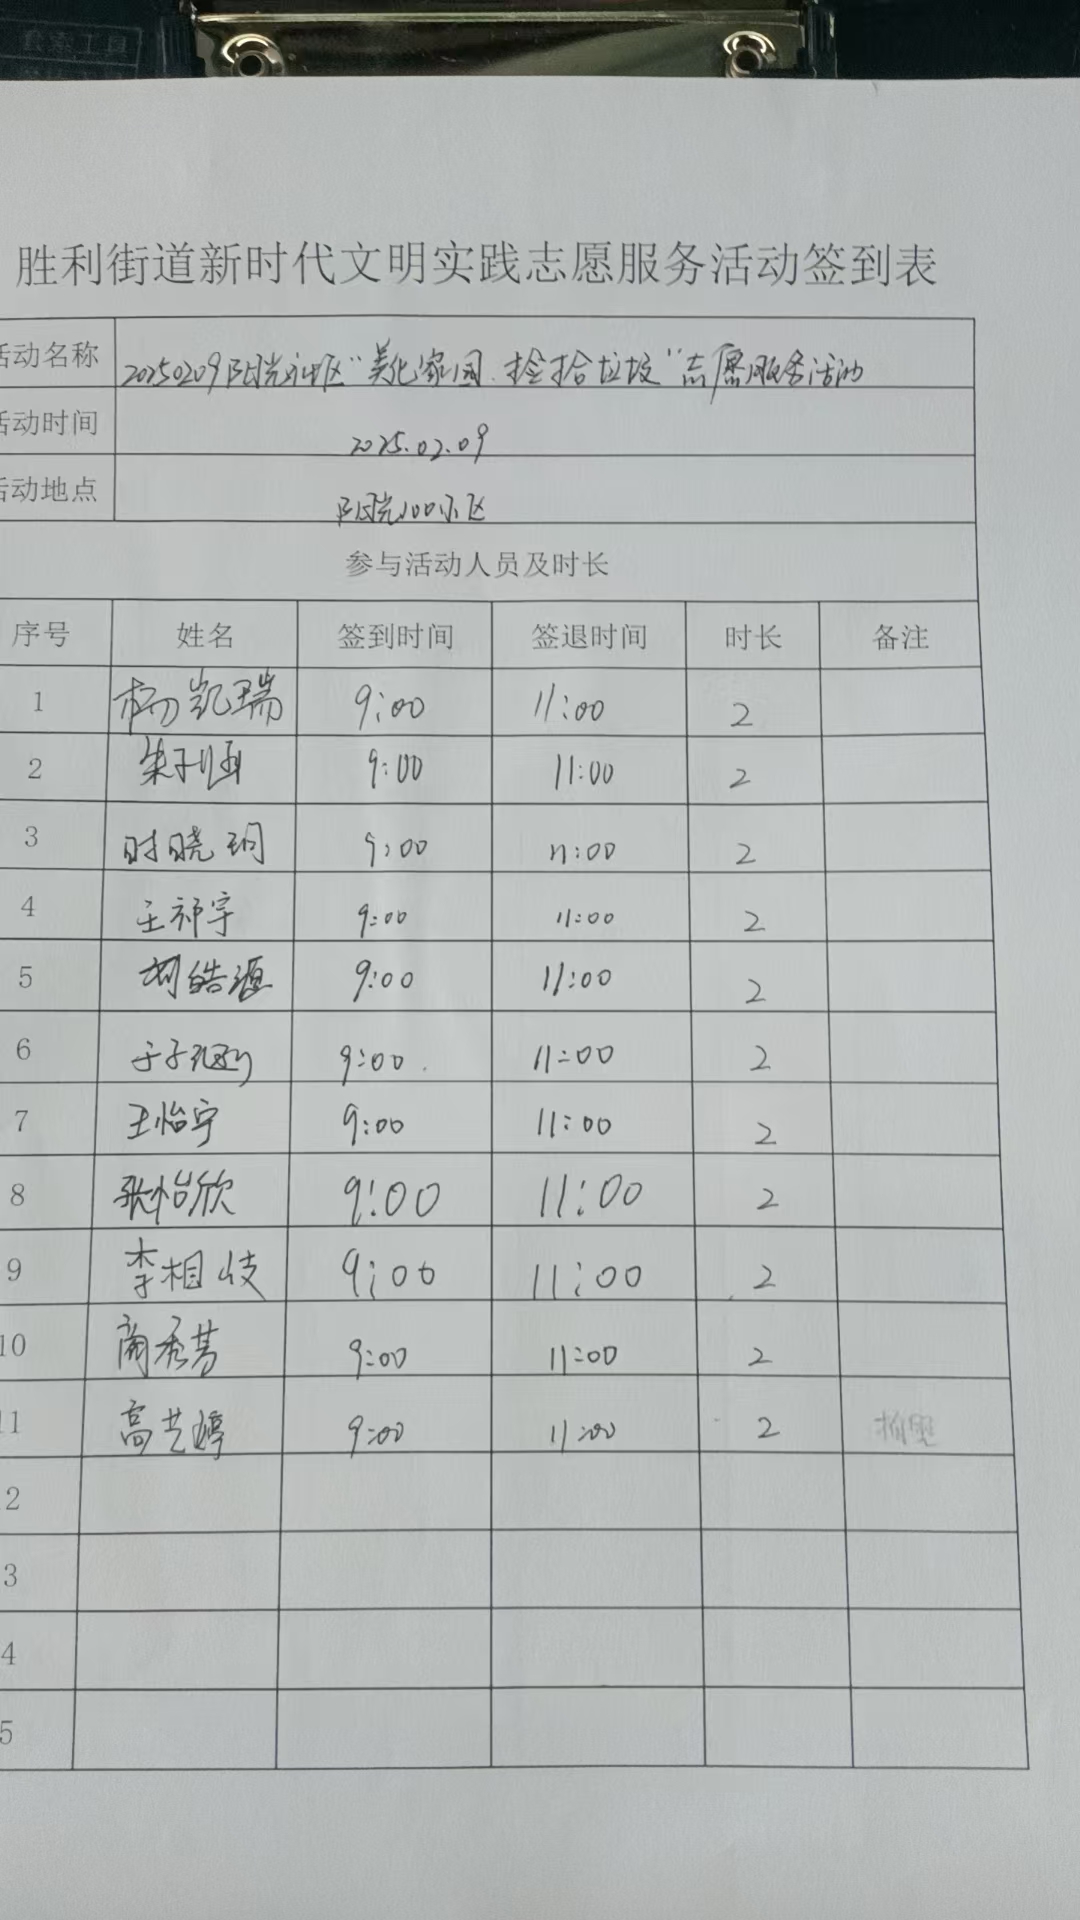 套索工具
胜利街道新时代文明实践志愿服务活动签到表
活动名称 20250209阳光社区“美化家园、捡拾垃圾”志愿服务活动
活动时间 2025.02.09
活动地点 阳光100小区
参与活动人员及时长
序号 姓名 签到时间 签退时间 时长 备注
1 杨凯瑞 9:00 11:00 2
2 朱子涵 9:00 11:00 2
3 时晓玥 9:00 11:00 2
4 王祁宇 9:00 11:00 2
5 皓源 9:00 11:00 2
6 于子 9:00 11:00 2
7 王怡宁 9:00 11:00 2
8 张怡欣 9:00 11:00 2
9 李相岐 9:00 11:00 2
10 秀芳 9:00 11:00 2
11 高芝婷 9:00 11:00 2
2
3
4
5